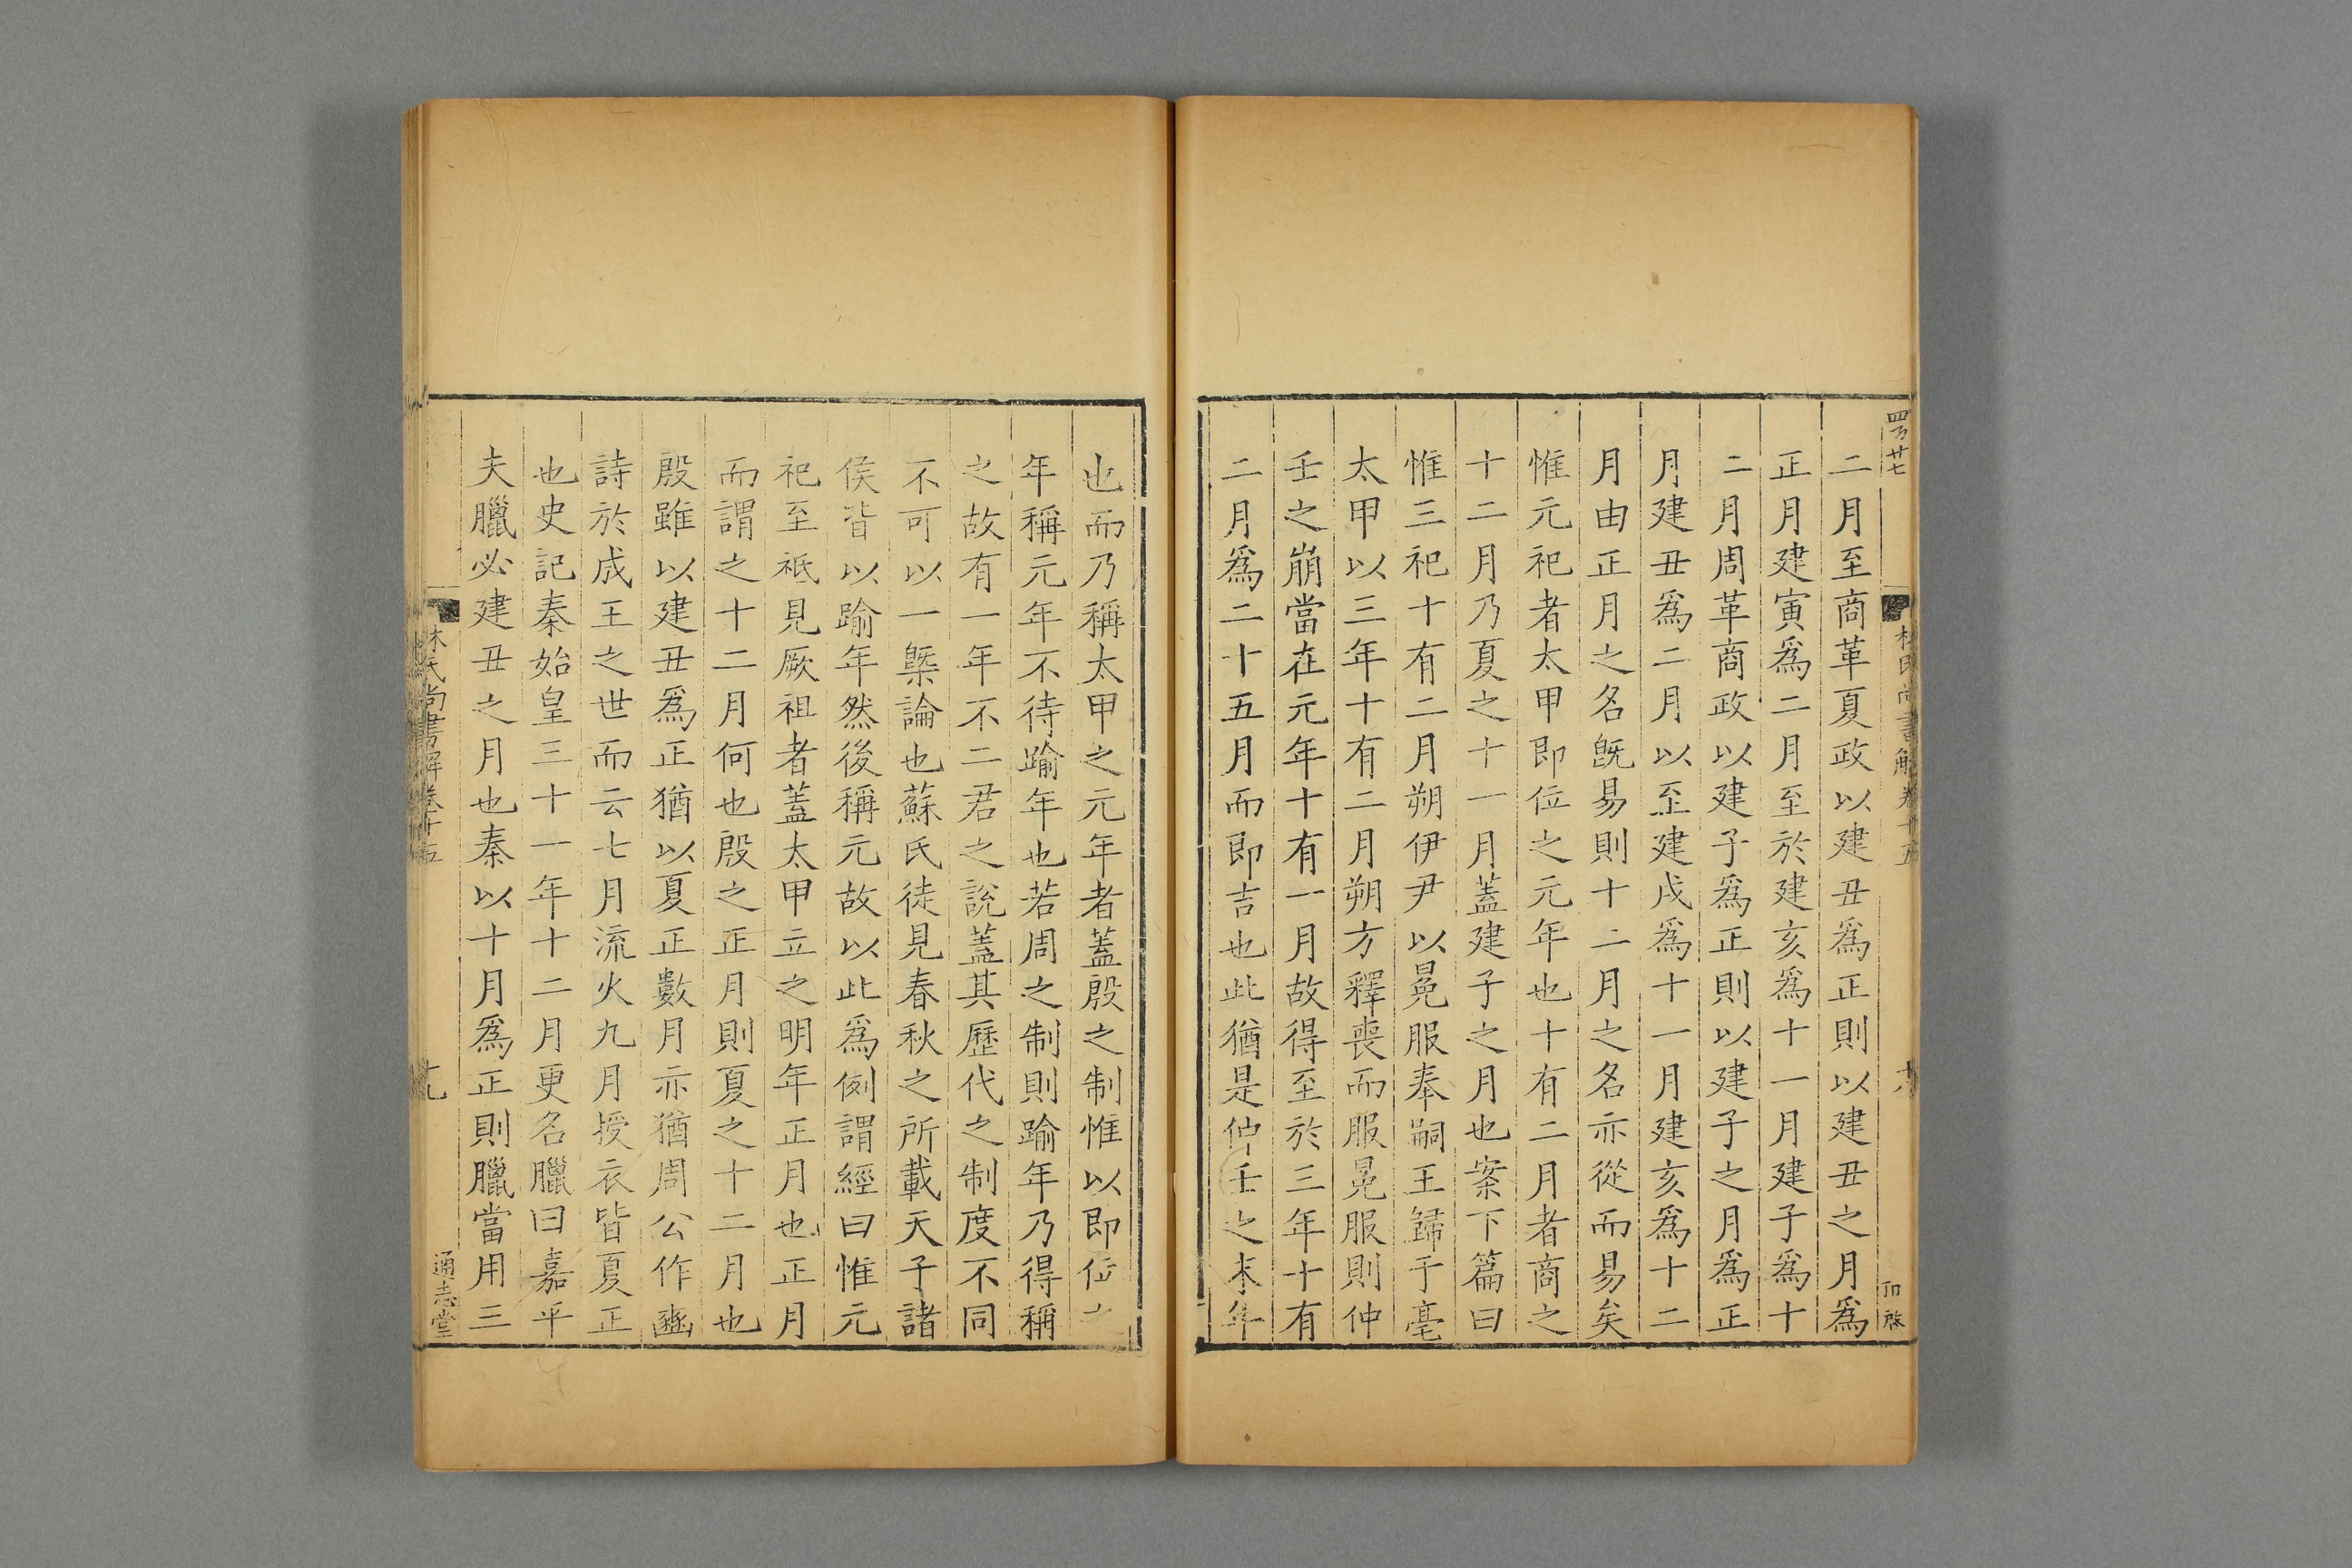 四百廿七
林氏尚書解卷十五
十八
二月至商革夏政以建丑為正則以建丑之月為
正月建寅為二月至於建亥為十一月建子為十
二月周革商政以建子為正則以建子之月為正
月建丑為二月以至建戌為十一月建亥為十二
月由正月之名旣易則十二月之名亦從而易矣
惟元祀者太甲即位之元年也十有二月者商之
十二月乃夏之十一月蓋建子之月也案下篇曰
惟三祀十有二月朔伊尹以冕服奉嗣王歸于亳
太甲以三年十有二月朔方釋喪而服冕服則仲
壬之崩當在元年十有一月故得至於三年十有
二月為二十五月而即吉也此猶是仲壬之末年
也而乃稱太甲之元年者蓋殷之制惟以即位之
年稱元年不待踰年也若周之制則踰年乃得稱
之故有一年不二君之說蓋其歷代之制度不同
不可以一槩論也蘇氏徒見春秋之所載天子諸
侯皆以踰年然後稱元故以此為例謂經曰惟元
祀至祗見厥祖者蓋太甲立之明年正月也正月
而謂之十二月何也殷之正月則夏之十二月也
殷雖以建丑為正猶以夏正數月亦猶周公作豳
詩於成王之世而云七月流火九月授衣皆夏正
也史記秦始皇三十一年十二月更名臘曰嘉平
夫臘必建丑之月也秦以十月為正則臘當用三
林氏尚書解卷十五
十九
通志堂